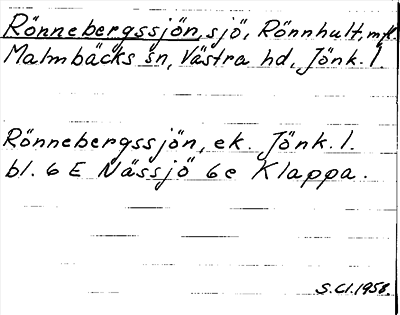 Rönnebergssjön, sjö, Rönnhult, mfl.
Malmbäcks sn, Västra hd, Jönk. l.
Rönnebergssjön, ek. Jönk. l.
bl. 6 E Nässjö 6e Klappa.
S.Cl.1958.